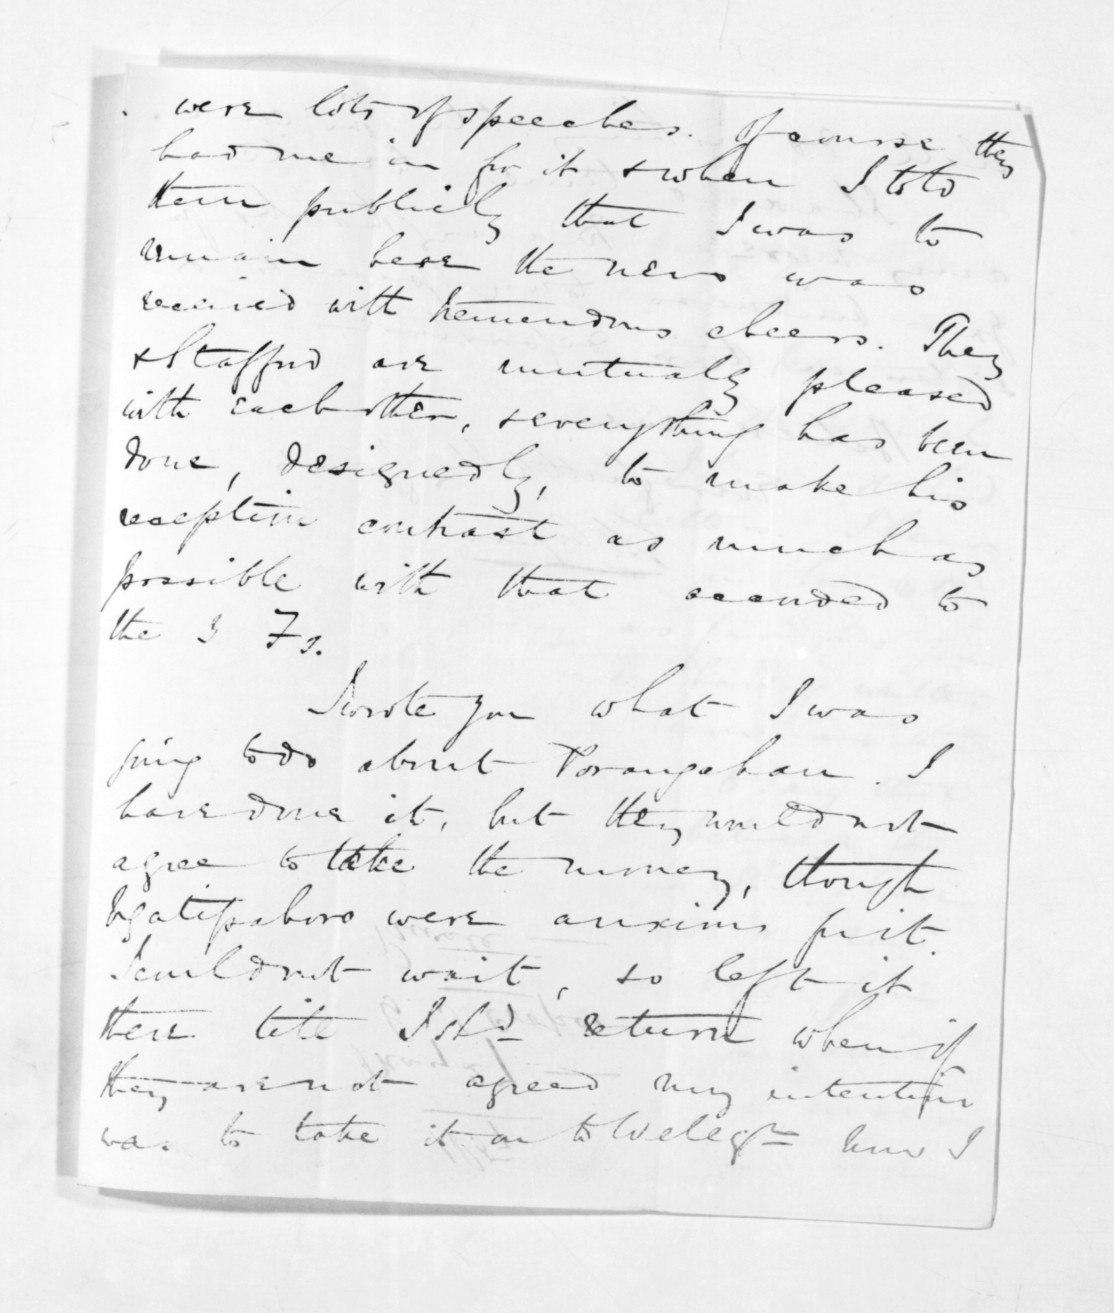 were lots of speeches. Of course they
had me in for it & when I told
them publicly that I was to
remain here the news was
received with tremendous cheers. They
& Stafford are mutually pleased
with each other, & everything has been
done, designedly, to make his
reception contrast as much as
possible with that accorded to
the 3 Fs.
I wrote you what I was
going to do about Porangahau. I
have done it, but they would not
agree to take the money, though
Ngatipahoro were anxious for it.
I could not wait, so left it
there till I shd return when if
they are not agreed my intention
was to take it on to Welegtn. Now I